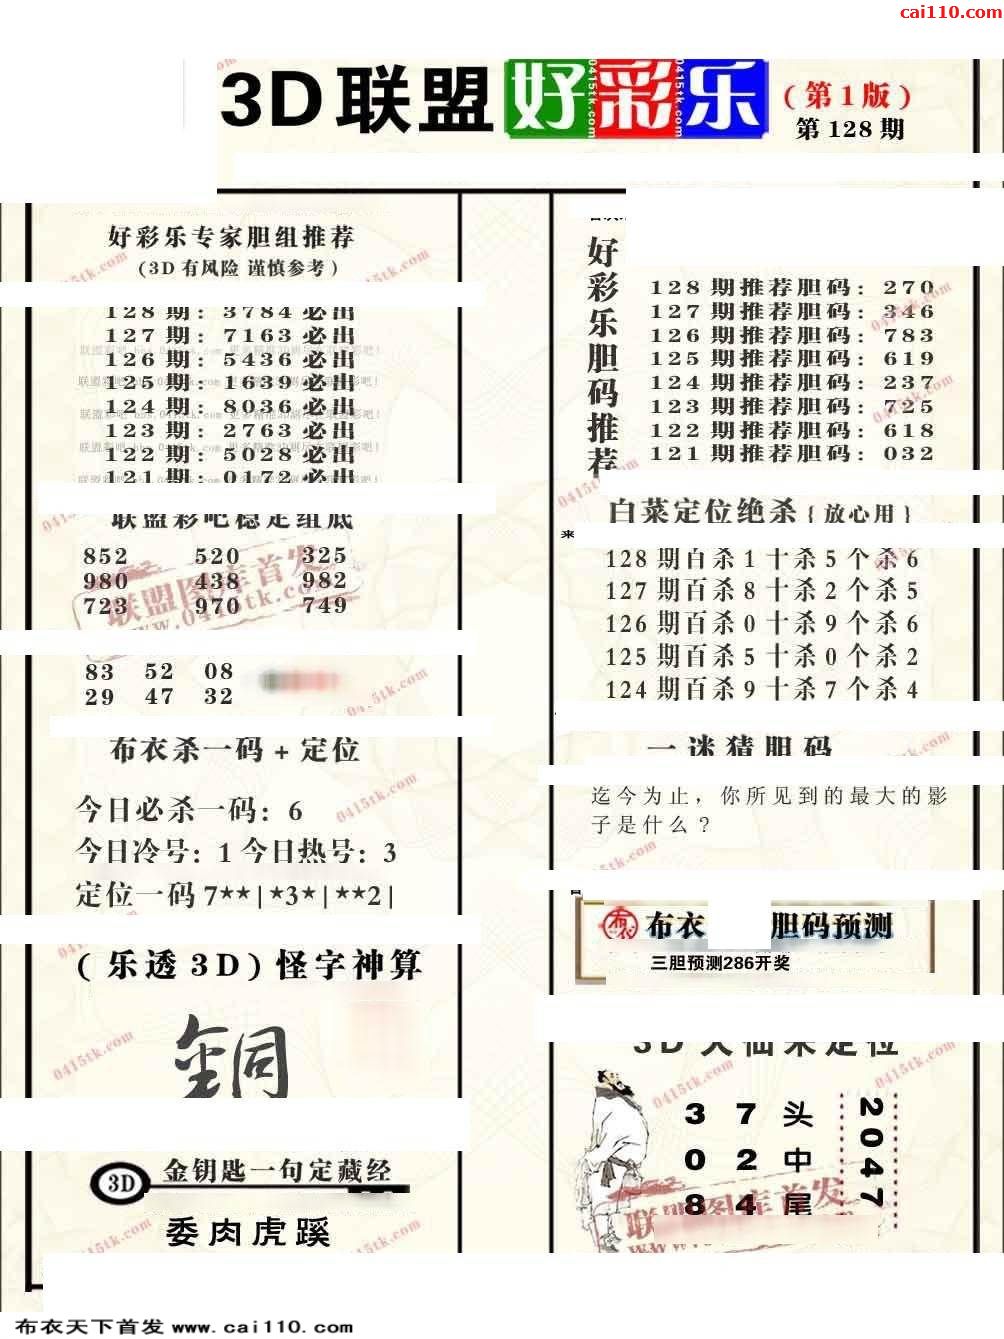 cai110.com
3D联盟好彩乐
(第1版)
第128期
好彩乐专家胆组推荐
(3D有风险 谨慎参考)
128期: 3784必出
127期: 7163必出
126期: 5436必出
125期: 1639必出
124期: 8036必出
123期: 2763必出
122期: 5028必出
121期: 0172必出
联盟彩吧稳定组底
852 520 325
980 438 982
723 970 749
83 52 08
29 47 32
布衣杀一码+定位
今日必杀一码: 6
今日冷号: 1 今日热号: 3
定位一码 7**|*3*|**2|
(乐透3D)怪字神算
銅
3D 金钥匙一句定藏经
委肉虎蹊
好彩乐胆码推荐
128期推荐胆码: 270
127期推荐胆码: 346
126期推荐胆码: 783
125期推荐胆码: 619
124期推荐胆码: 237
123期推荐胆码: 725
122期推荐胆码: 618
121期推荐胆码: 032
白菜定位绝杀{放心用}
128期百杀1十杀5个杀6
127期百杀8十杀2个杀5
126期百杀0十杀9个杀6
125期百杀5十杀0个杀2
124期百杀9十杀7个杀4
一迷猜胆码
迄今为止，你所见到的最大的影
子是什么?
布衣 布衣 胆码预测
三胆预测286开奖
3D大仙来定位
3 7 头
0 2 中
8 4 尾
2047
联盟图库首发
www.0415tk.com
0415tk.com
布衣天下首发 www.cai110.com